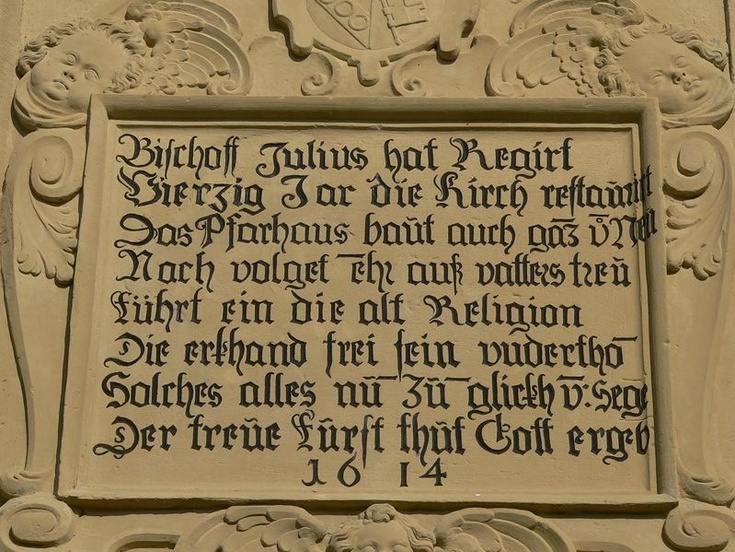 Bischoff Julius hat Regirt
Vierzig Jar die Kirch restaurirt
Das Pfarhaus baut auch gāz vō Neu
Nach volget Ehr auß vatters treu
Führt ein die alt Religion
Die erkhand frei sein underthō
Solches alles nū zū glickh v̄: Sege
Der treue Fürst thut Gott ergeb
1614